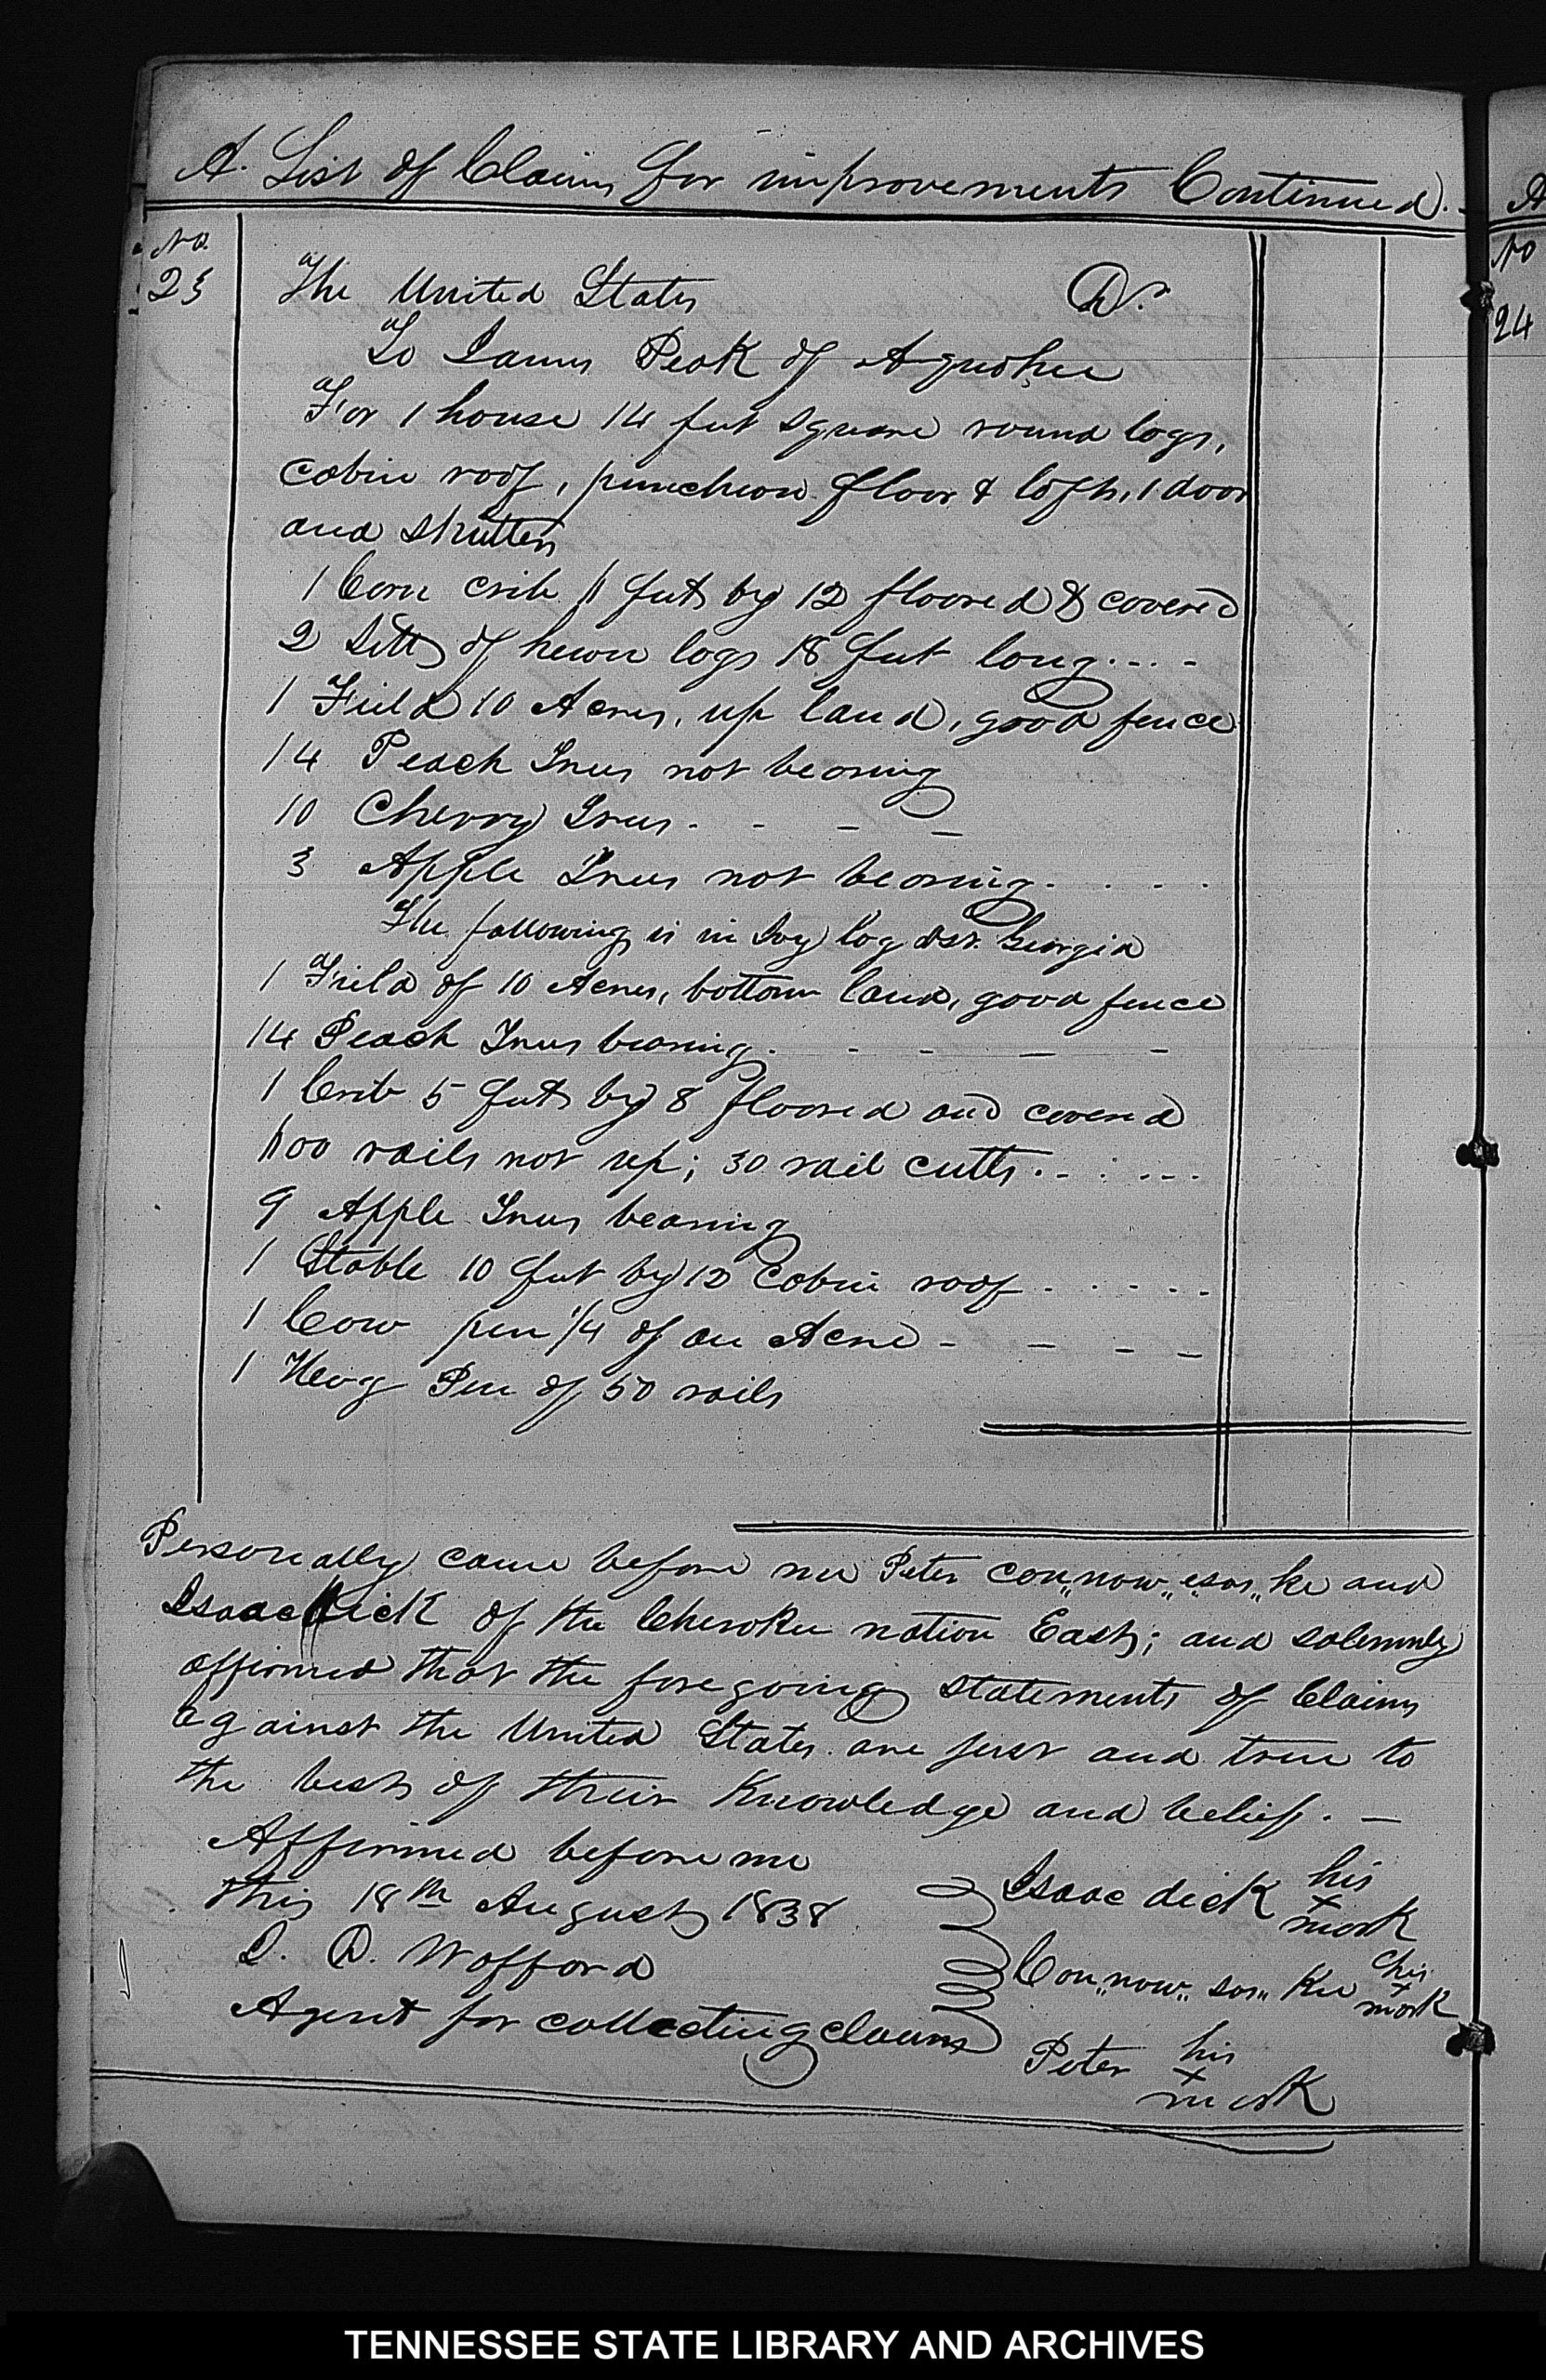 A. List of Claims for improvements Continued.
No.
23
The United States Dr.
To James Peak of Aquohee
For 1 house 14 feet square round logs,
cabin roof, puncheon floor & loft, 1 door
and shutter
1 Corn crib 11 feet by 12 floored & covered
2 Setts of hewn logs 18 feet long
1 Field 10 Acres, up land, good fence
14 Peach Trees not bearing
10 Cherry Trees
3 Apple Trees not bearing
The following is in Ivy log dist. Georgia
1 Field of 10 Acres, bottom land, good fence
14 Peach Trees bearing
1 Crib 5 feet by 8 floored and covered
1100 rails not up; 30 rail cutts
9 Apple Trees bearing
1 Stable 10 feet by 12 Cabin roof
1 Cow pen 1/4 of an Acre
1 Hog Pen of 50 rails
Personally came before me Peter con,,now,,esos,,ke and
Isaac dick of the Cherokee nation East; and solemnly
affirmed that the foregoing statements of Claims
against the United States are just and true to
the best of their Knowledge and belief.
Affirmed before me
this 18th August 1838
J. D. Wofford
Agent for collecting claims
Isaac dick his
x
mark
Con,,now,,sos,,Kee his
x
mark
Peter his
x
mark
A
No
24
TENNESSEE STATE LIBRARY AND ARCHIVES